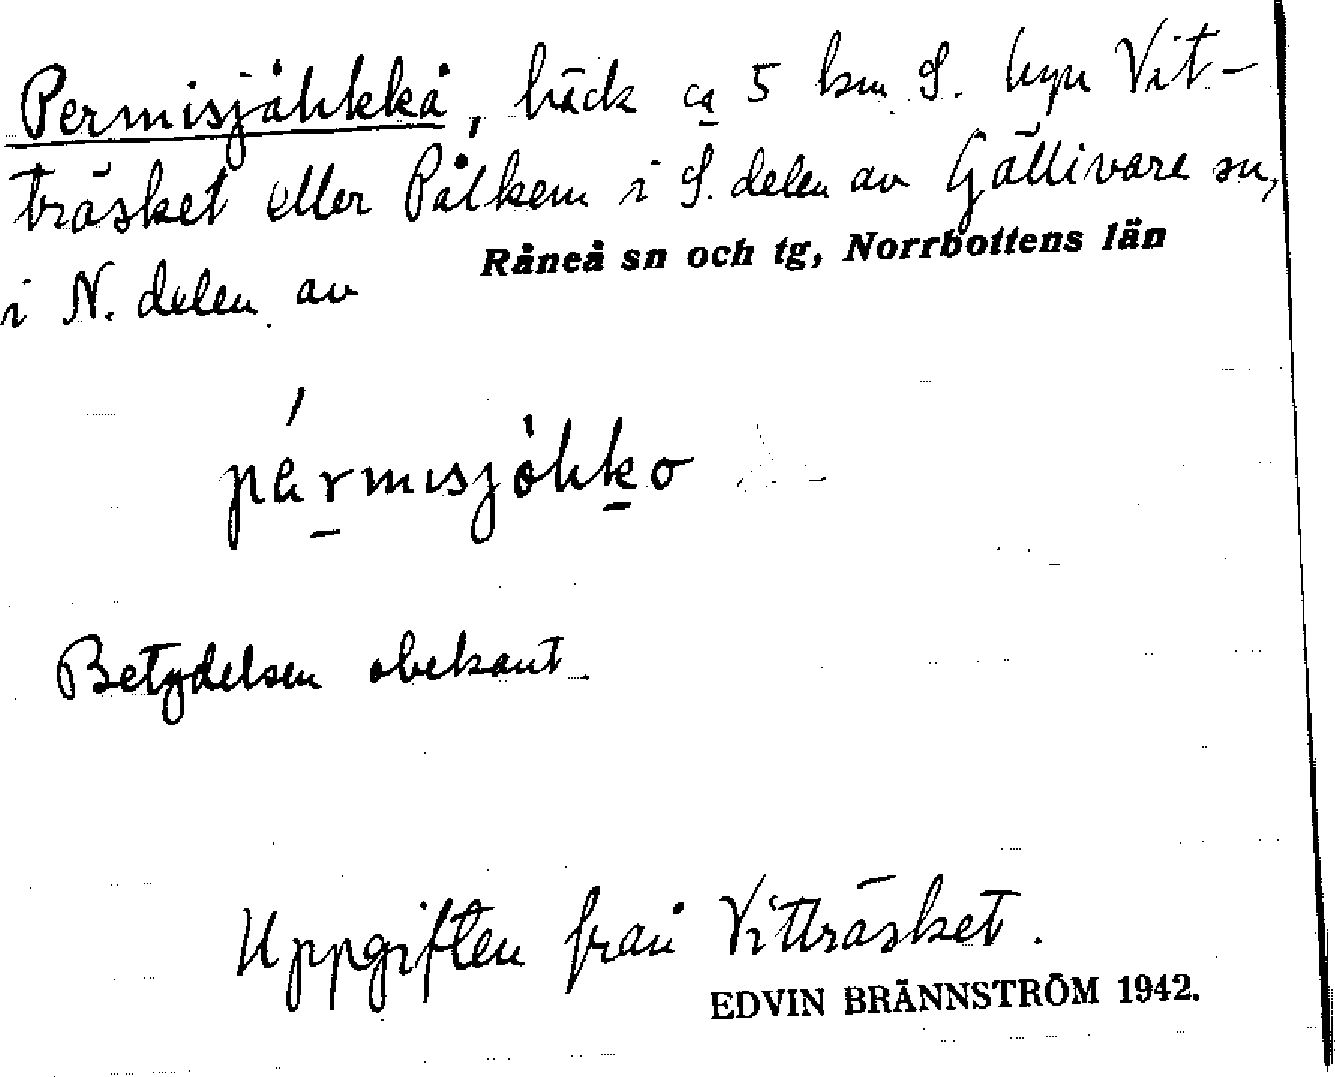 Permisjåhkkå, bäck ca 5 km S. byn Vit-
träsket eller Pålkem i S. delen av Gällivare sn,
i N. delen av Råneå sn och tg, Norrbottens län
pérmisjåhko
Betydelsen obekant
Uppgiften från Vitträsket.
EDVIN BRÄNNSTRÖM 1942.